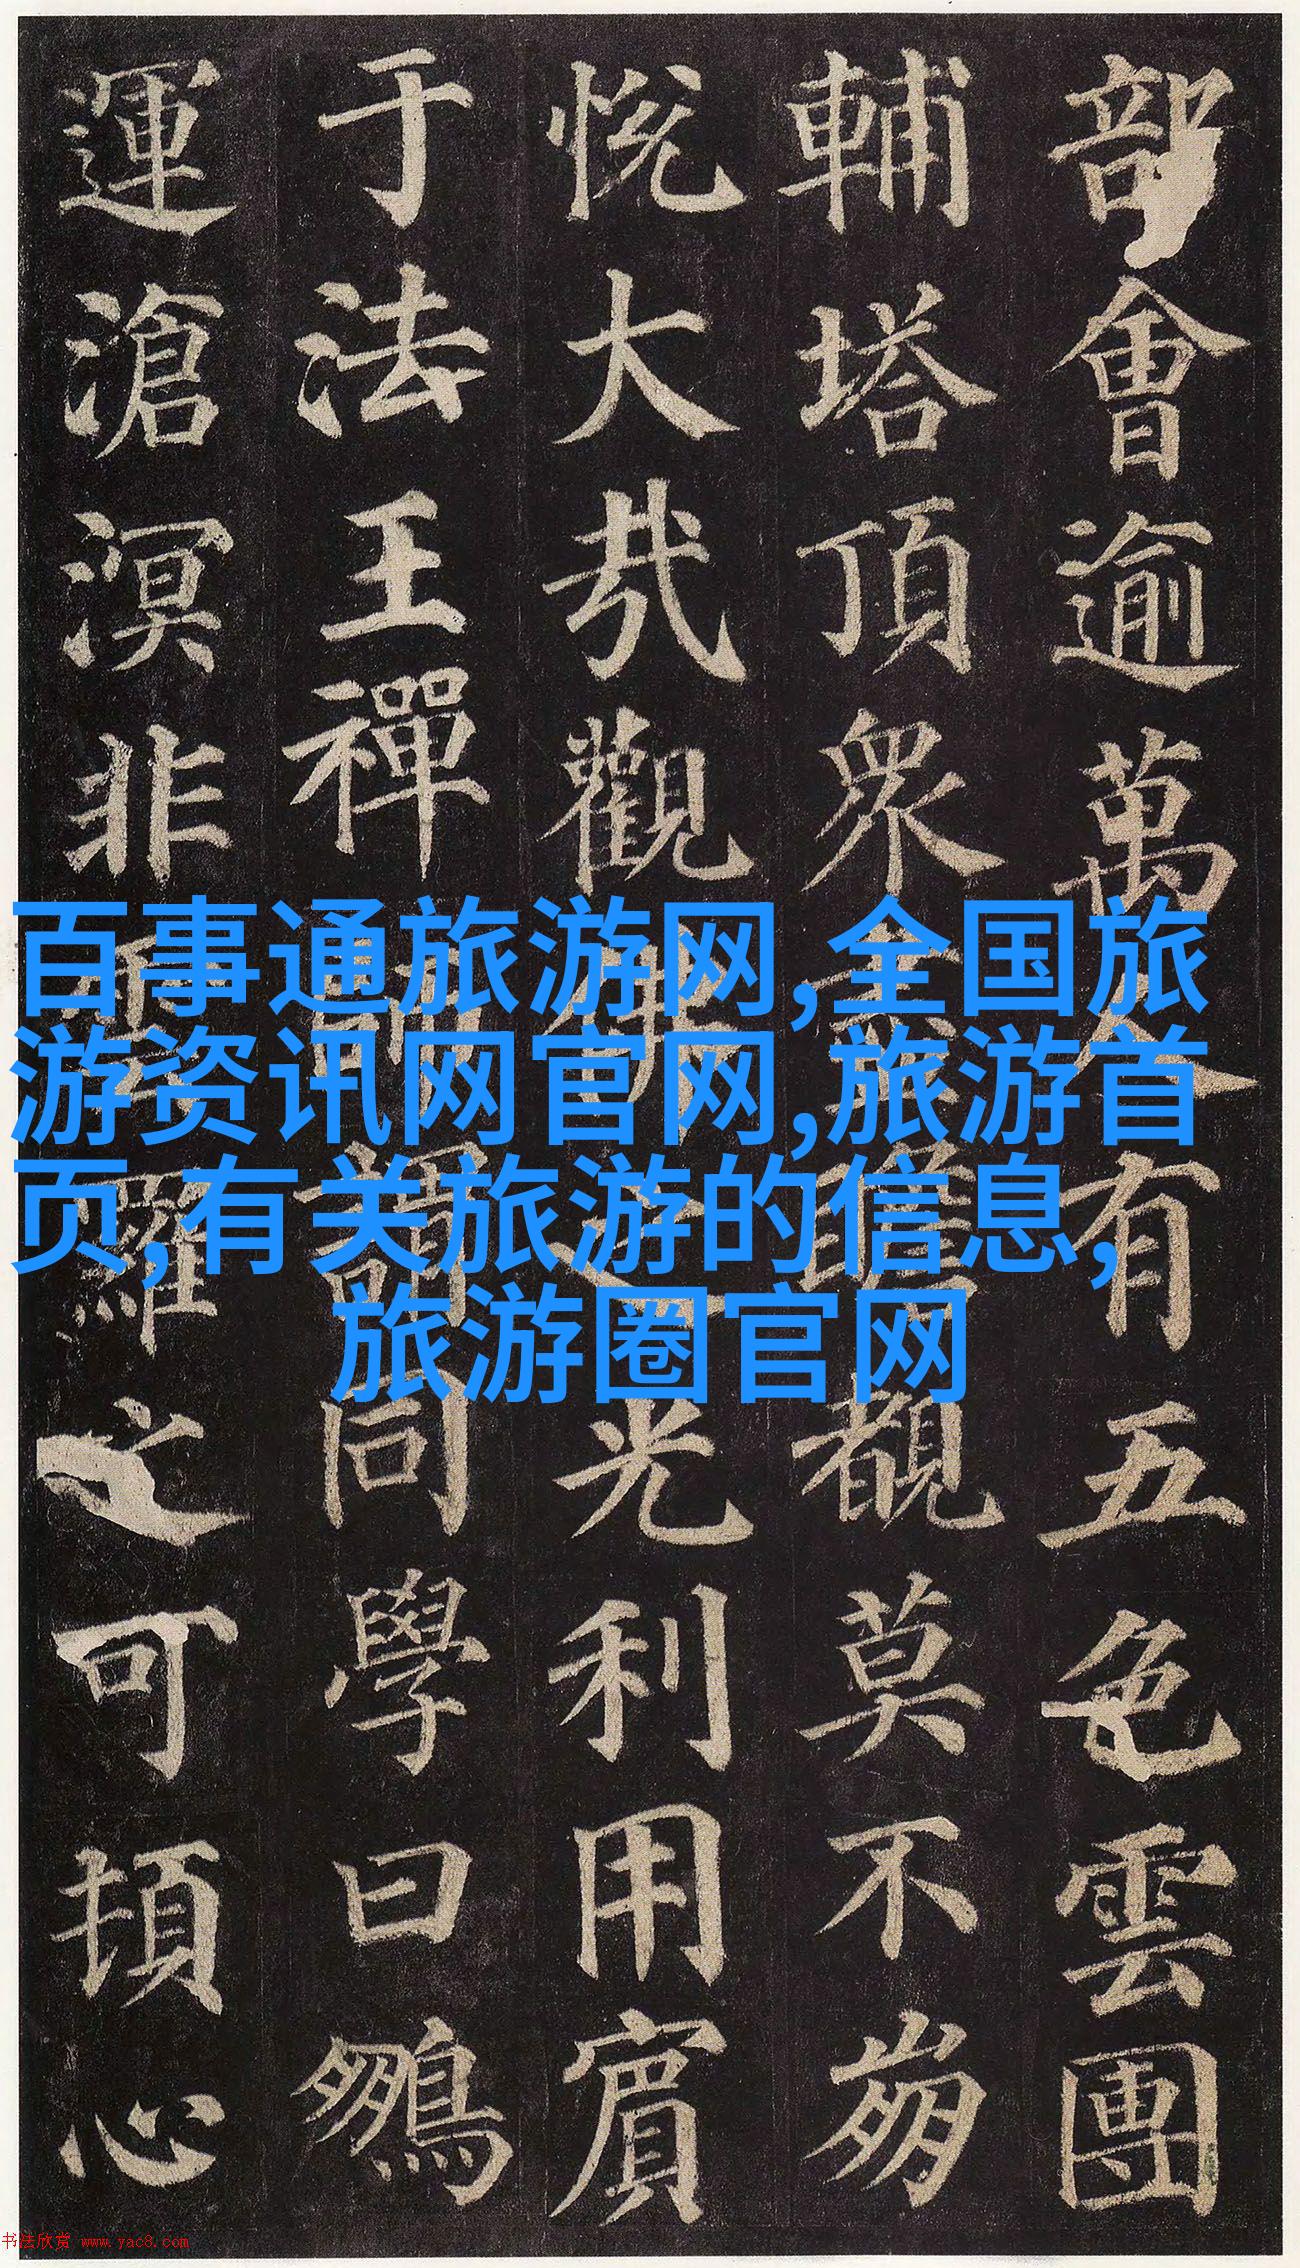 部會逾萬人有五色雲團
輔塔頂眾盡瞻覩莫不崩
悅大哉觀佛之光利用賓
于法王禪師謂同學曰鵬
運滄溟非雲羅之可頓心
百事通旅游网,全国旅
游资讯网官网,旅游首
页,有关旅游的信息,
旅游圈官网
书法欣赏 www.yac8.com